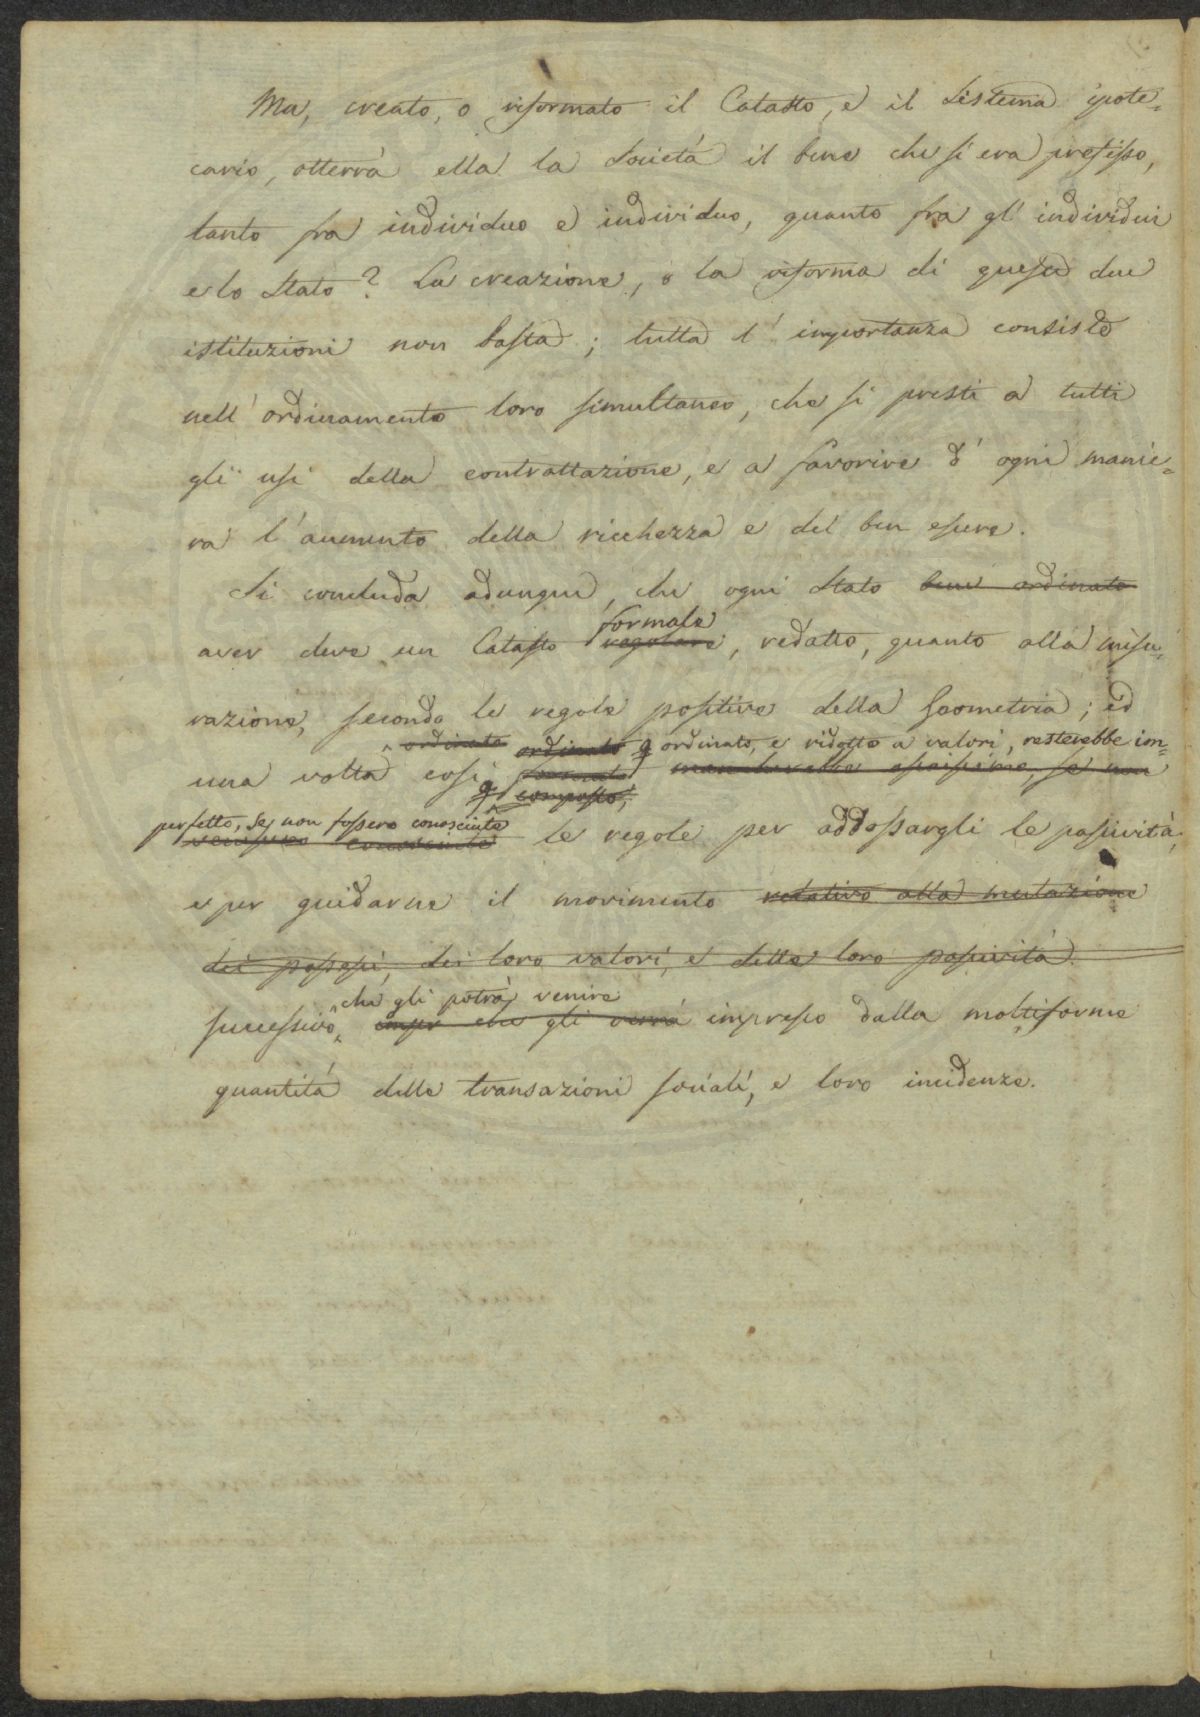 Ma, creato, o riformato il Catasto, e il Sistema ipote=
cario, otterrà ella la Società il bene che si era prefisso,
tanto fra individuo e individuo, quanto fra gl' individui
e lo Stato? La creazione, o la riforma di queste due
istituzioni non basta; tutta l' importanza consiste
nell' ordinamento loro simultaneo, che si presti a tutti
gli usi della contrattazione, e a favorire d' ogni manie=
ra l' aumento della ricchezza e del ben essere.
Si concluda adunque, che ogni Stato bene ordinato
formale
aver deve un Catasto regolare, redatto, quanto alla misu=
razione, secondo le regole positive della Geometria; ed
ordinato ordinato ordinato, e ridotto a valori, resterebbe im=
una volta così formato mancherebbe assaissimo, se non
composto,
perfetto, se non fossero conosciute
venissero conosciute le regole per addossargli le passività,
e per guidarne il movimento relativo alla mutazione
dei possessi, dei loro valori, e delle loro passività
che gli potrà venire
successivo, che gli verrà impresso dalla moltiforme
quantità delle transazioni sociali, e loro incidenze.